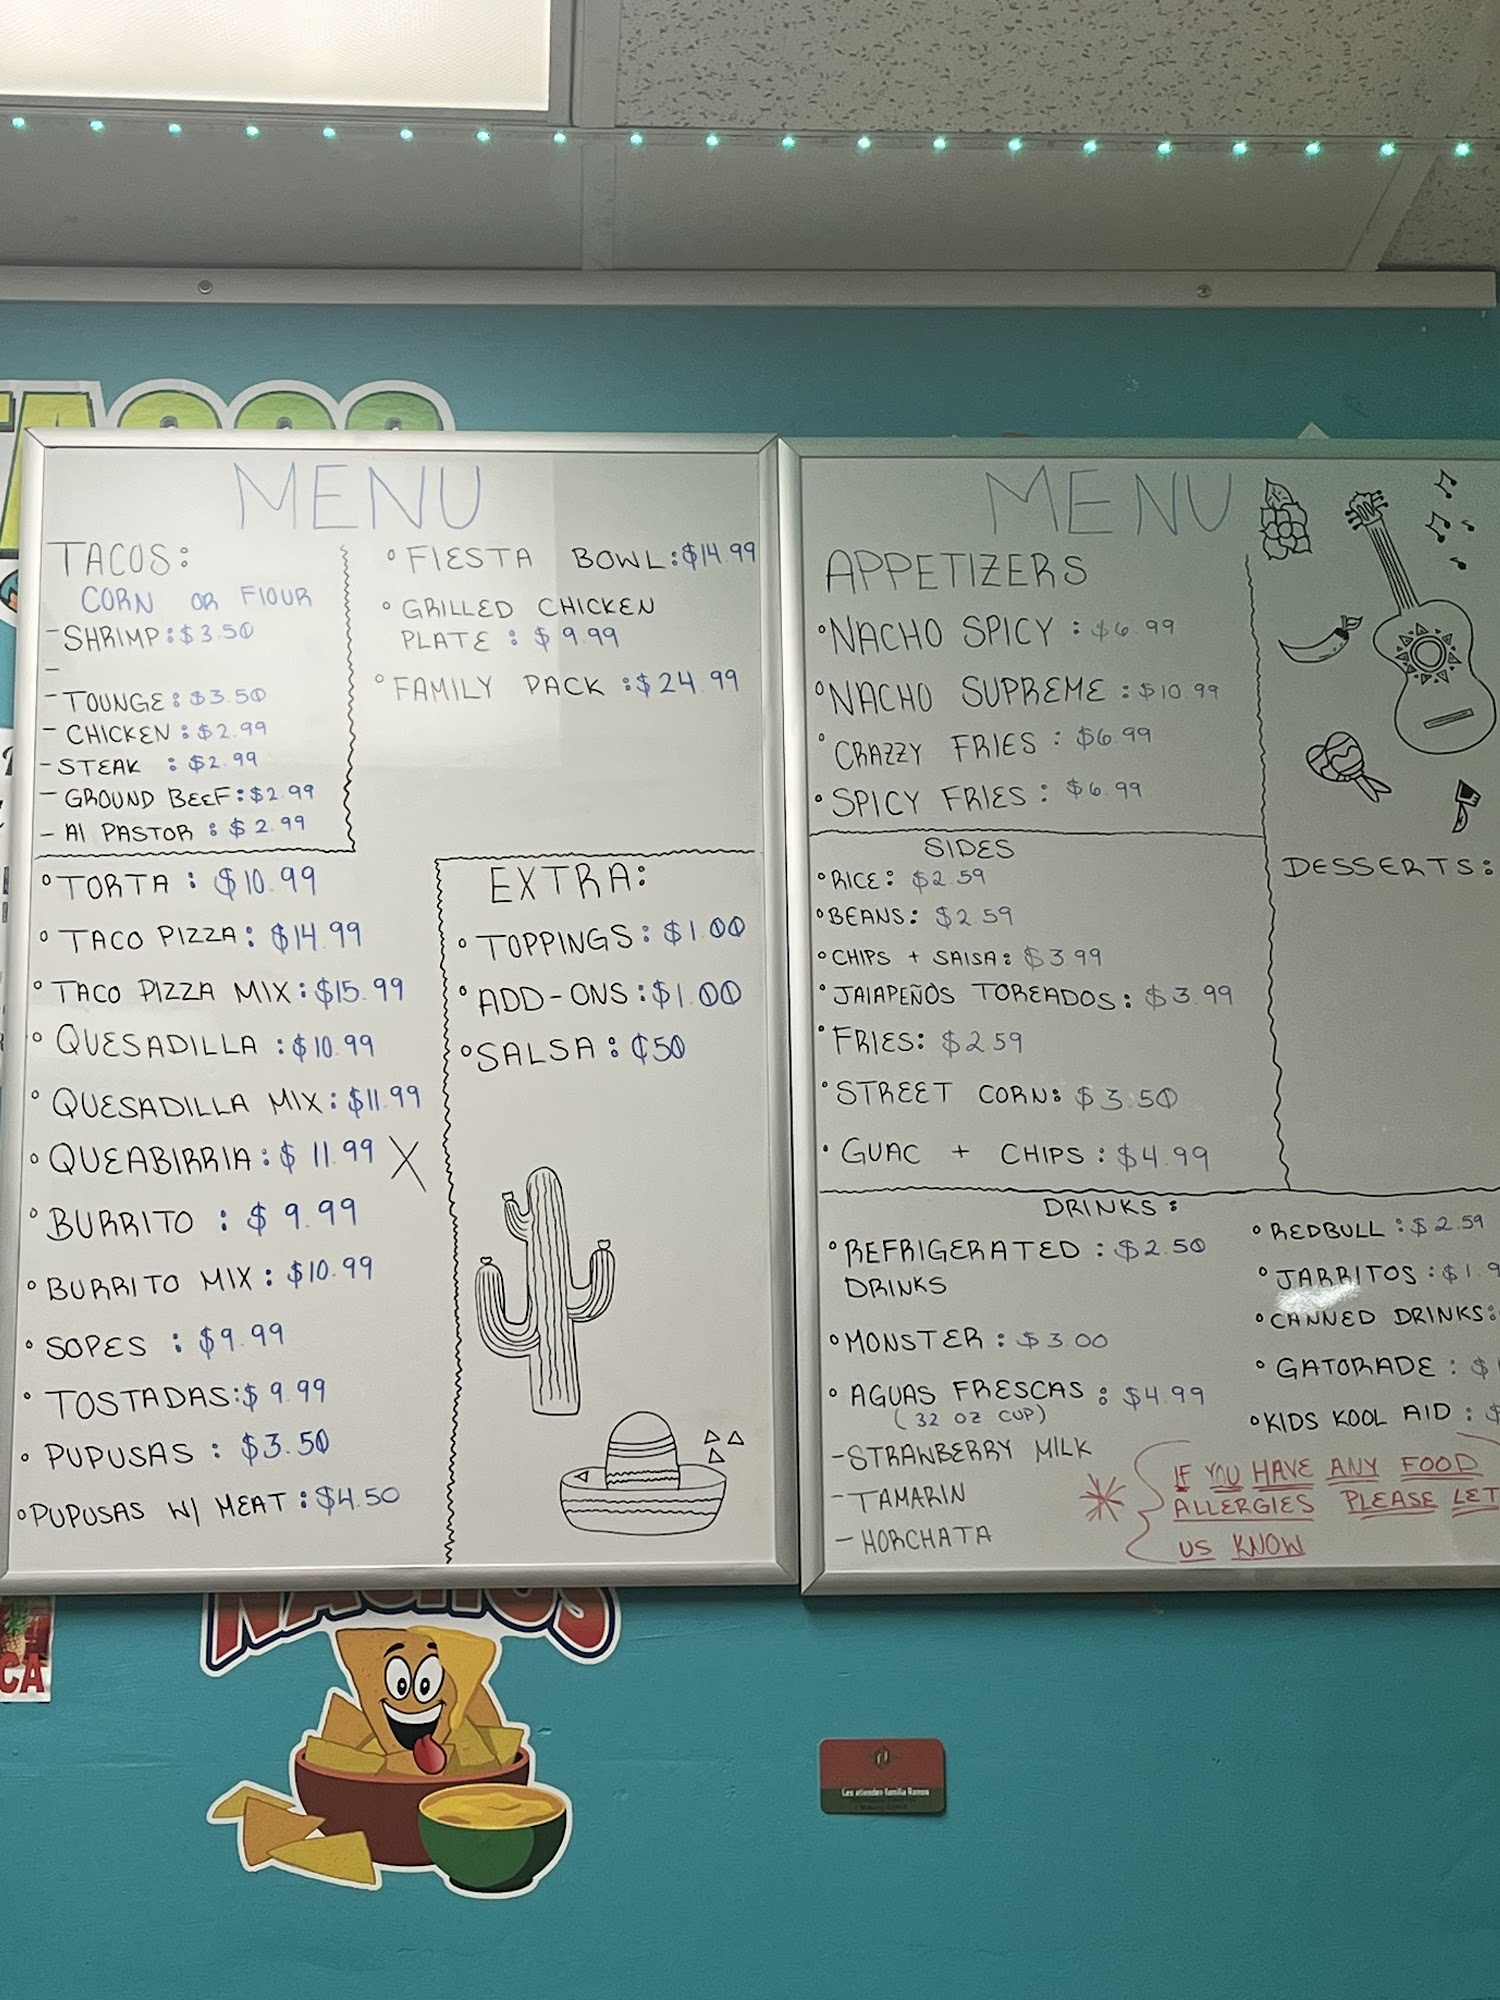 TACOS
MENU
TACOS:
CORN OR FlOUR
- SHRIMP: $3.50
-
- TOUNGE: $3.50
- CHICKEN: $2.99
- STEAK : $2.99
- GROUND BEEF: $2.99
- Al PASTOR : $2.99
° FIESTA BOWL: $14.99
° GRILLED CHICKEN
PLATE : $9.99
° FAMILY PACK : $24.99
° TORTA : $10.99
° TACO PIZZA: $14.99
° TACO PIZZA MIX: $15.99
° QUESADILLA : $10.99
° QUESADILLA MIX: $11.99
° QUEABIRRIA: $11.99 X
° BURRITO : $9.99
° BURRITO MIX: $10.99
° SOPES : $9.99
° TOSTADAS: $9.99
° PUPUSAS : $3.50
° PUPUSAS W/ MEAT : $4.50
EXTRA:
° TOPPINGS: $1.00
° ADD-ONS: $1.00
° SALSA: ¢50
MENU
APPETIZERS
° NACHO SPICY : $6.99
° NACHO SUPREME : $10.99
° CRAZZY FRIES : $6.99
° SPICY FRIES : $6.99
SIDES
° RICE: $2.59
° BEANS: $2.59
° CHIPS + SAlSA: $3.99
° JAlAPEÑOS TOREADOS: $3.99
° FRIES: $2.59
° STREET CORN: $3.50
° GUAC + CHIPS : $4.99
DESSERTS:
DRINKS:
° REFRIGERATED : $2.50
DRINKS
° MONSTER: $3.00
° AGUAS FRESCAS : $4.99
(32 OZ CUP)
- STRAWBERRY MILK
- TAMARIN
- HORCHATA
° REDBULL : $2.59
° JARRITOS : $1.9
° CANNED DRINKS:
° GATORADE : $
° KIDS KOOL AID : $
* IF YOU HAVE ANY FOOD
ALLERGIES PLEASE LET
US KNOW
NACHOS
CA
Los atiende familia Ramos